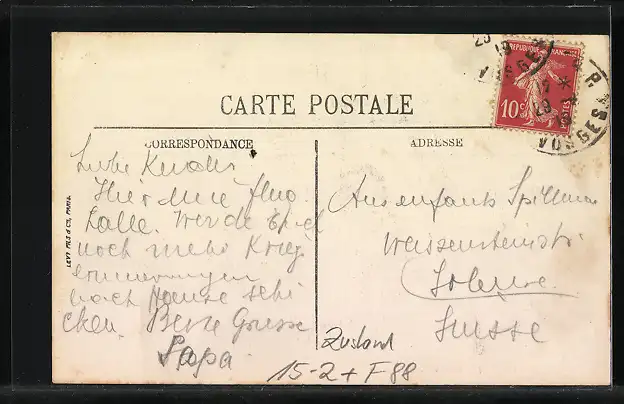 CARTE POSTALE
CORRESPONDANCE
ADRESSE
REPUBLIQUE FRANÇAISE
10c POSTES
VOSGES
LEVY FILS & Cie, PARIS
Liebe Kinder
Hier eine
Karte. Werde Euch
noch mehr Krieg
erinnerungen
nach Hause schi
cken. Beste Grüsse
Papa
Aux enfants Spillmann
Weissensteinstr.
Soleure
Suisse
Zustand
15-2+ F88